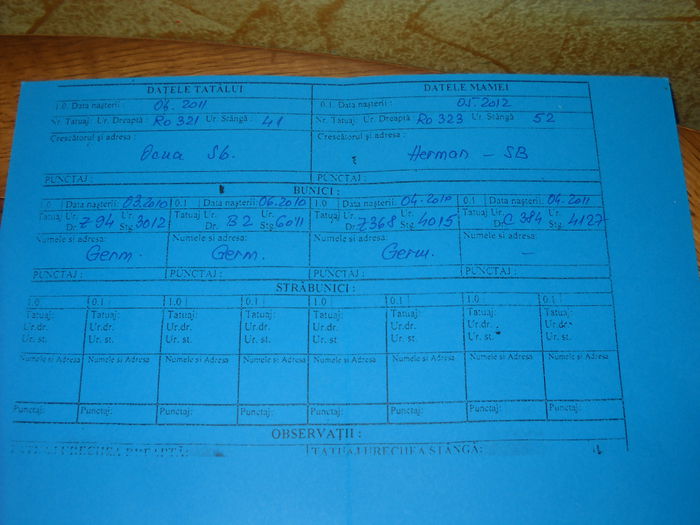 DATELE TATĂLUI DATELE MAMEI
1.0. Data nașterii : 06. 2011 0.1. Data nașterii : 05.2012
Nr. Tatuaj: Ur. Dreaptă : Ro 321 Ur. Stângă : 41 Nr. Tatuaj: Ur. Dreaptă : Ro 323 Ur. Stângă 52
Crescătorul și adresa : Crescătorul și adresa :
Sb. Herman - SB
PUNCTAJ : PUNCTAJ :
BUNICI :
1.0 Data nașterii: 03.2010 0.1 Data nașterii: 06.2010 1.0 Data nașterii: 04.2010 0.1 Data nașterii: 04.2011
Tatuaj Ur. Ur. Tatuaj Ur. Ur. Tatuaj Ur. Ur. Tatuaj Ur. Ur.
Dr. Z 94 Stg. 3012 Dr. B 2 Stg. 6011 Dr. Z 368 Stg. 4015 Dr. C 384 Stg. 4127
Numele si adresa: Numele si adresa: Numele si adresa: Numele si adresa:
Germ. Germ. Germ. -
PUNCTAJ : PUNCTAJ : PUNCTAJ : PUNCTAJ :
STRĂBUNICI :
1.0 0.1 1.0 0.1 1.0 0.1 1.0 0.1
Tatuaj: Tatuaj: Tatuaj: Tatuaj: Tatuaj: Tatuaj: Tatuaj: Tatuaj:
Ur.dr. Ur.dr. Ur.dr. Ur.dr. Ur.dr. Ur.dr. Ur.dr. Ur.dr.
Ur. st. Ur. st. Ur. st. Ur. st. Ur. st. Ur. st. Ur. st. Ur. st.
Numele si Adresa Numele si Adresa Numele si Adresa Numele si Adresa Numele si Adresa Numele si Adresa Numele si Adresa Numele si Adresa
Punctaj: Punctaj: Punctaj: Punctaj: Punctaj: Punctaj: Punctaj: Punctaj:
OBSERVAȚII :
TATUAJ URECHEA DREAPTĂ: TATUAJ URECHEA STÂNGĂ: